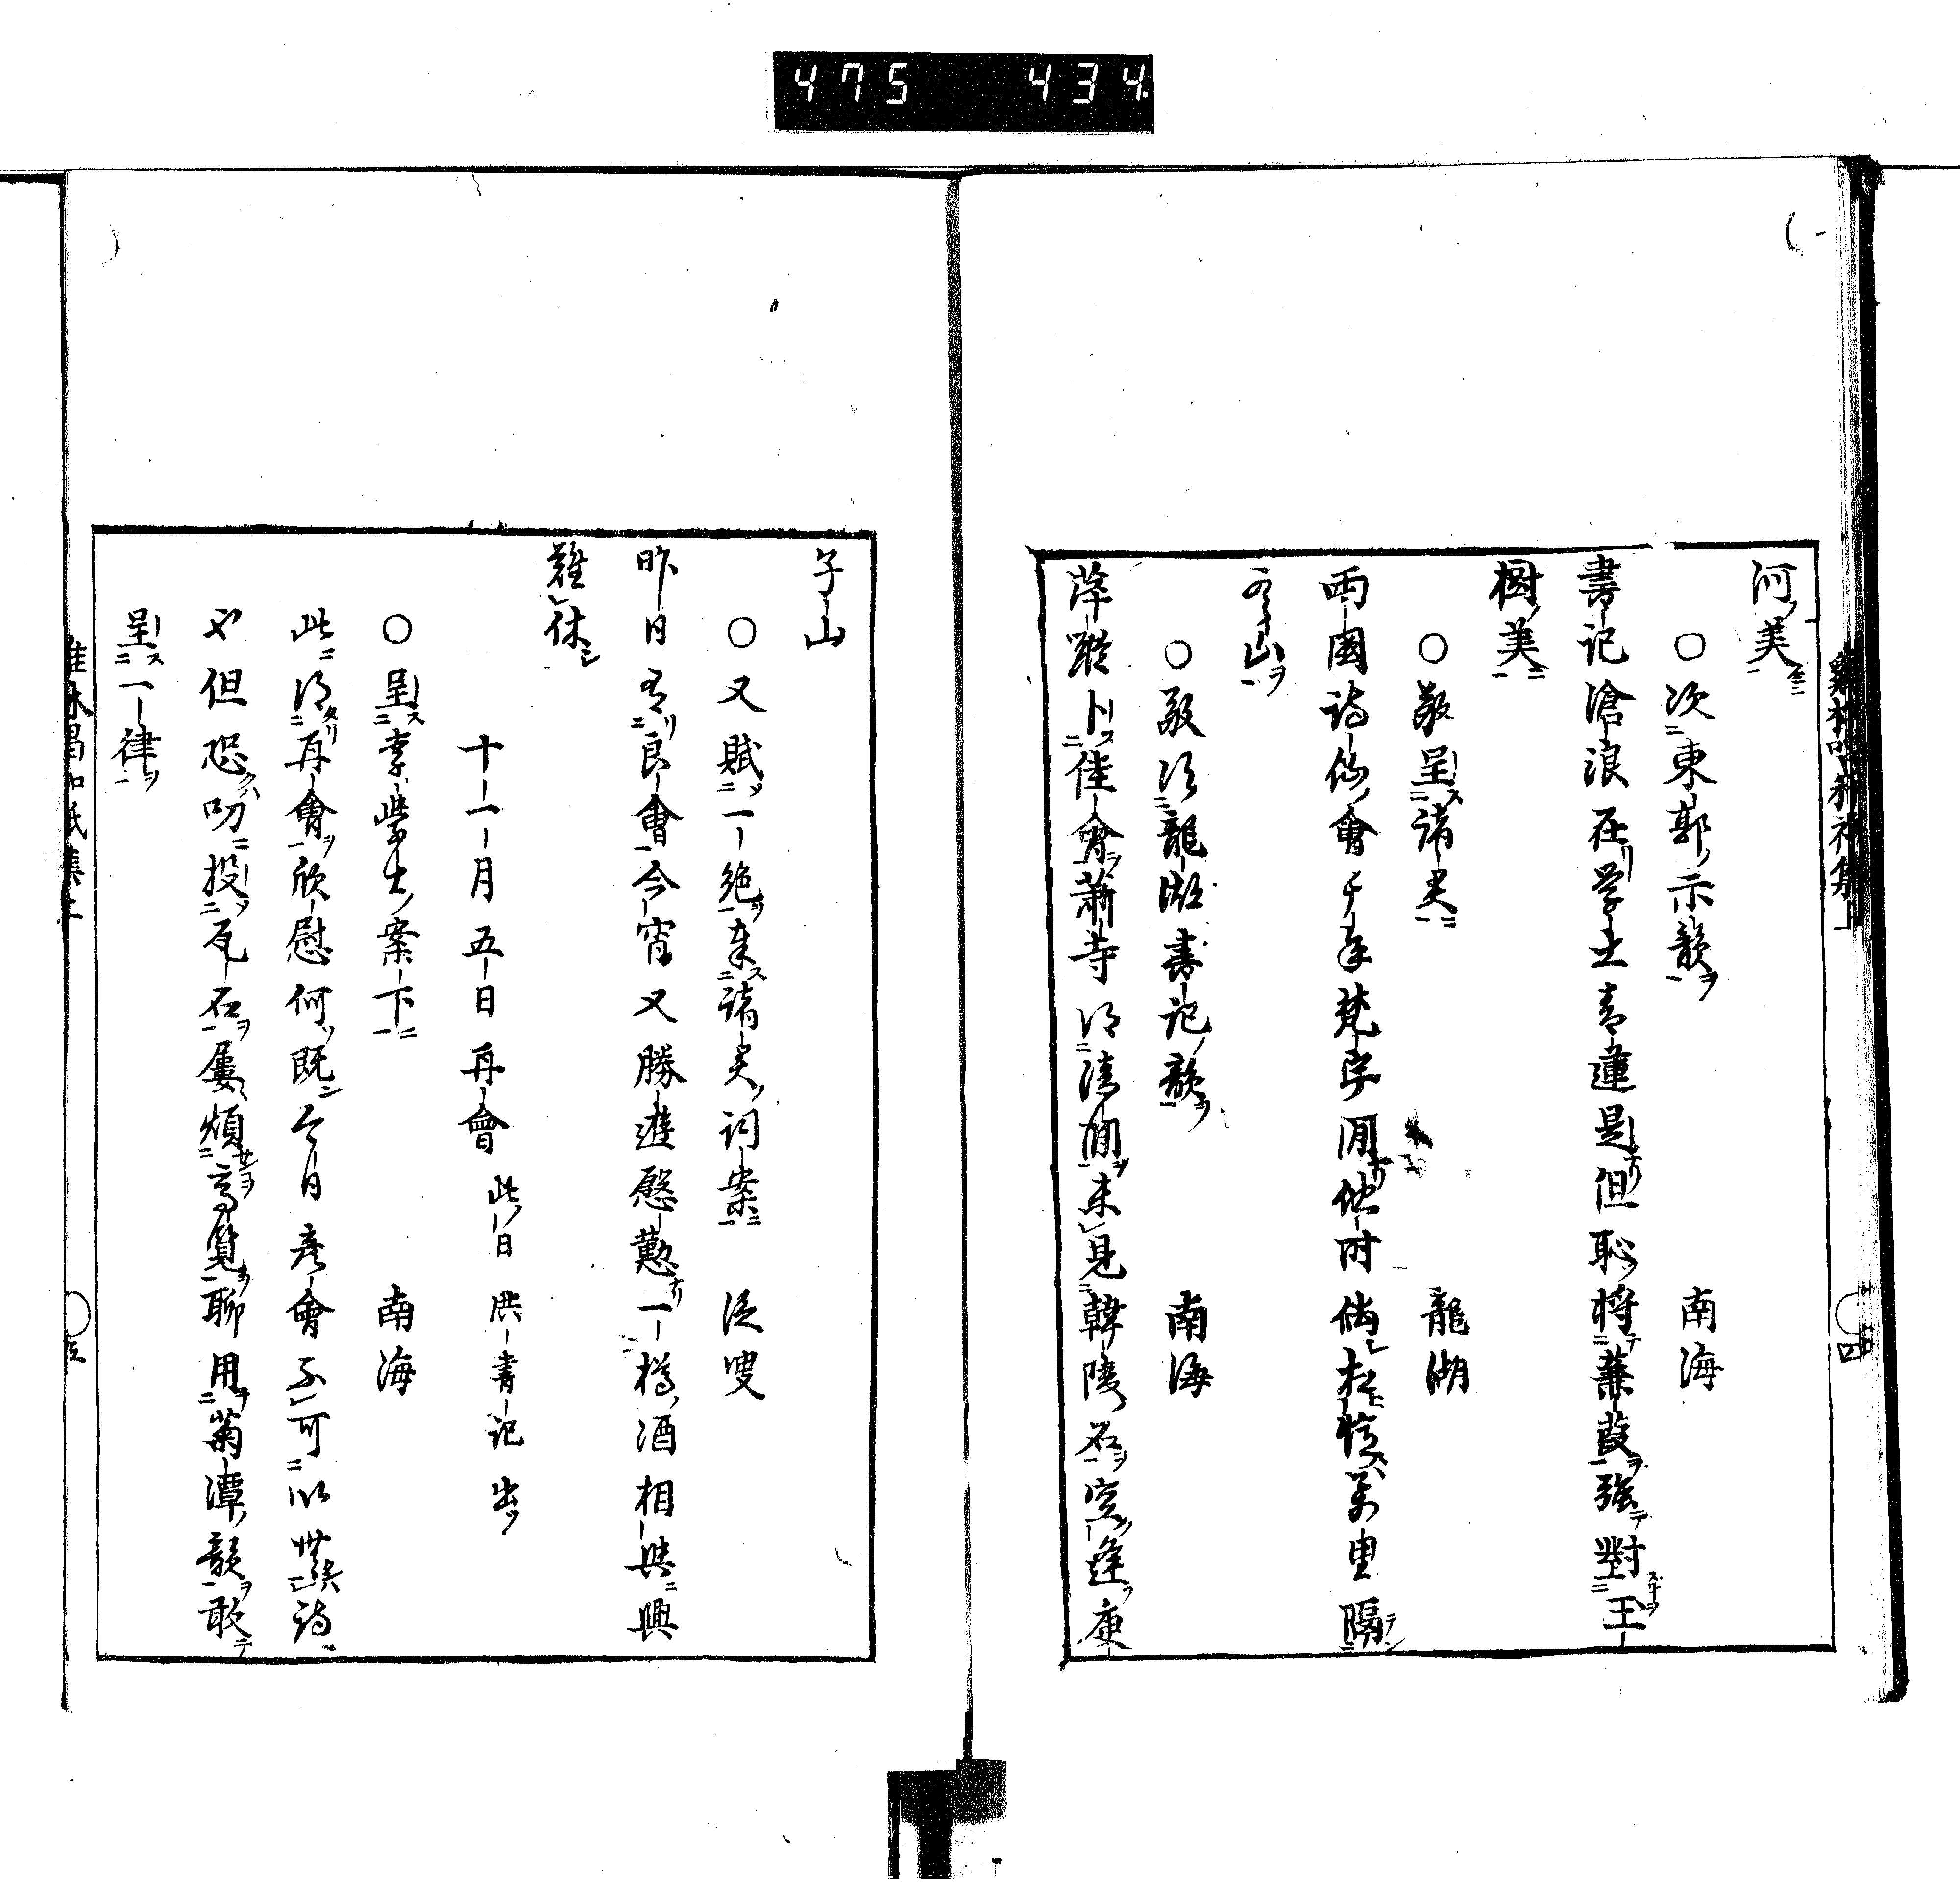 475 434
河美
○次東郭示韻 南海
書記滄浪在学士青蓮是但恥將蒹葭强對王
樹美
○敬呈諸丈 龍湖
兩國詩仙會千年梵宇閒他時倘相憶萬里隔
山
○敬次龍湖書記韻 南海
萍蹤卜佳會蕭寺得清閒未見韓陵石空逢庾
子山
○又賦一絶奉諸丈詞案 泛叟
昨日有良會今宵又勝遊慇懃一樽酒相與興
難休
十一月五日再會 此日洪書記出
○呈李学士案下 南海
此得再會欣慰何既今日彥會不可以無詩
但恐叨投瓦石屢煩高覧聊用菊潭韻敢
呈一律